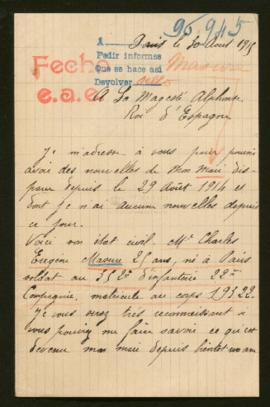 96945
A
Pedir informes
Que se hace así
Devolver
Fecha
e.a.e.
Paris le 30 Aout 1915
Masson
A Sa Magesté Alphonse
Roi d'Espagne
Je m'adresse à vous pour pouvoir
avoir des nouvelles de mon mari dis-
paru depuis le 29 Août 1914 et
dont je n'ai aucune nouvelles depuis
ce jour.
Voici son état civil. Mr Charles
Eugène 25 ans, né à Paris
soldat au 352e d'infanterie 22e
Compagnie, matricule au corps 19322.
Je vous serez très reconnaissant si
vous pouviez me faire savoir ce qu'est
devenu mon mari depuis bientôt un an